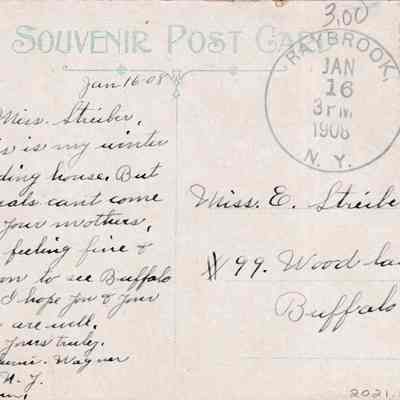 3,00
SOUVENIR POST CARD
RAYBROOK,
JAN
16
3 PM
1908
N. Y.
Jan 16-08
Miss. Streiber,
is is my winter
ding house. But
als cant come
your mothers,
feeling fine &
on to see Buffalo
I hope you & your
are well.
yours truly.
Wagner
N. Y.
Miss. E. Streibe
#99. Wood la
Buffalo
2021.